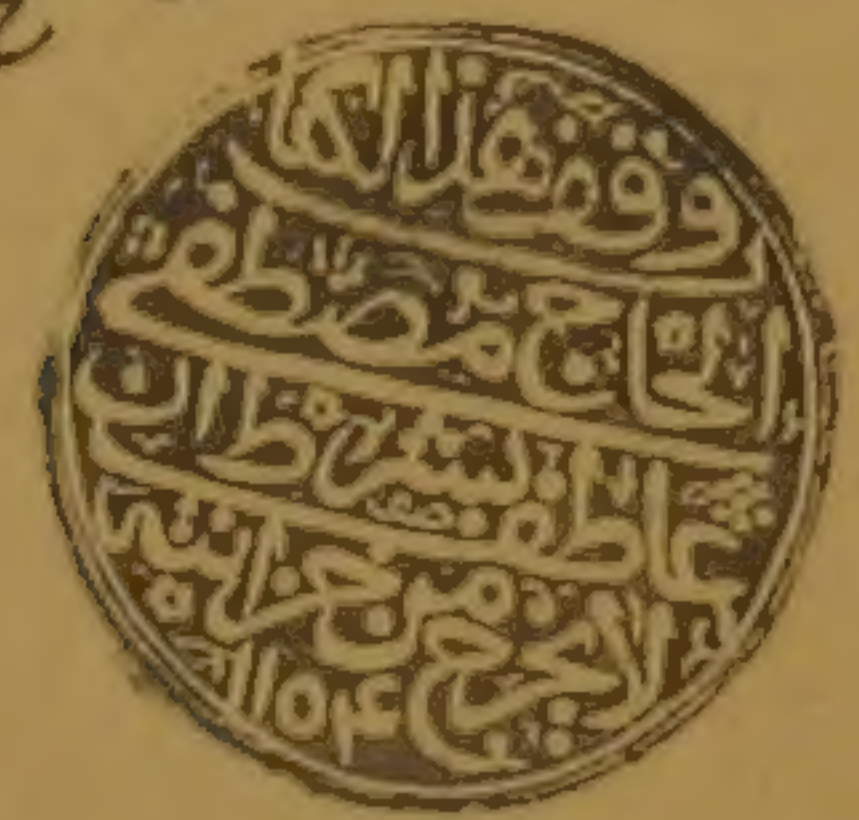 وقف هذا الكتاب
الحاج مصطفى
عاطف بشرط ان
لا يخرج من خزانتي
١١٥۴